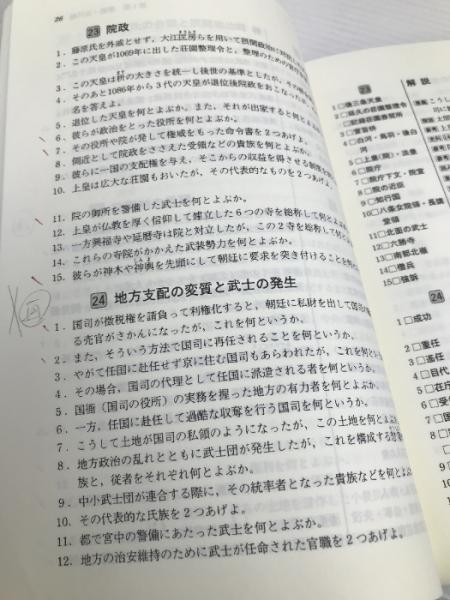 26
23 院政
1. 藤原氏を外戚とせず，大江匡房らを用いて摂関政治に
2. この天皇が1069年に出した荘園整理令と，整理のための
3. この天皇が枡の大きさを統一し後世の基準としたが，
4. そのあと1086年から3代の天皇が退位後院政をおこな
名を答えよ。
5. 退位した天皇を何とよぶか。また，それが出家すると何とよ
6. 彼らが政治をとった役所を何とよぶか。
7. その役所や院が発して権威をもった命令書を2つあげよ。
8. 側近として院政をささえた受領などの貴族を何とよぶか。
9. 彼らに一国の支配権を与え，そこからの収益を得させる制度を
10. 上皇は広大な荘園もおいたが，その代表的なものを2つあげよ。
11. 院の御所を警備した武士を何とよぶか。
12. 上皇が仏教を厚く信仰して建立した6つの寺を総称して何と
13. 一方興福寺や延暦寺は院と対立したが，この2寺を総称して何と
14. これらの寺院がかかえた武装勢力を何とよぶか。
15. 彼らが神木や神輿を先頭にして朝廷に要求を突き付けることを何と
24 地方支配の変質と武士の発生
1. 国司が徴税権を請負って利権化すると，朝廷に私財を出して国司
る売官がさかんになったが，これを何というか。
2. また，そういう方法で国司に再任されることを何というか。
3. やがて任国に赴任せず京に住む国司もあらわれたが，これを何と
4. その場合，国司の代理として任国に派遣される者を何というか。
5. 国衙（国司の役所）の実務を握った地方の有力者を何とよぶか。
6. 一方，任国に赴任して過酷な収奪を行う国司を何というか。
7. こうして土地が国司の私領のようになったが，この土地を何という
8. 地方政治の乱れとともに武士団が発生したが，これを構成する
族と，従者をそれぞれ何とよぶか。
9. 中小武士団が連合する際に，その統率者となった貴族などを何とよ
10. その代表的な氏族を2つあげよ。
11. 都で宮中の警備にあたった武士を何とよぶか。
12. 地方の治安維持のために武士が任命された官職を2つあげよ。
23
解説
1□後三条天皇
2□延久の荘園整理令
□記録荘園券契所
3□宣旨枡
4□白河・鳥羽・後白
河
5□上皇(院)・法皇
6□院庁
7□院庁下文・院宣
8□院の近臣
9□知行国
10□八条女院領・長講
堂領
11□北面の武士
12□六勝寺
13□南都北嶺
14□僧兵
15□強訴
24
1□成功
2□重任
3□遥任
4□目代